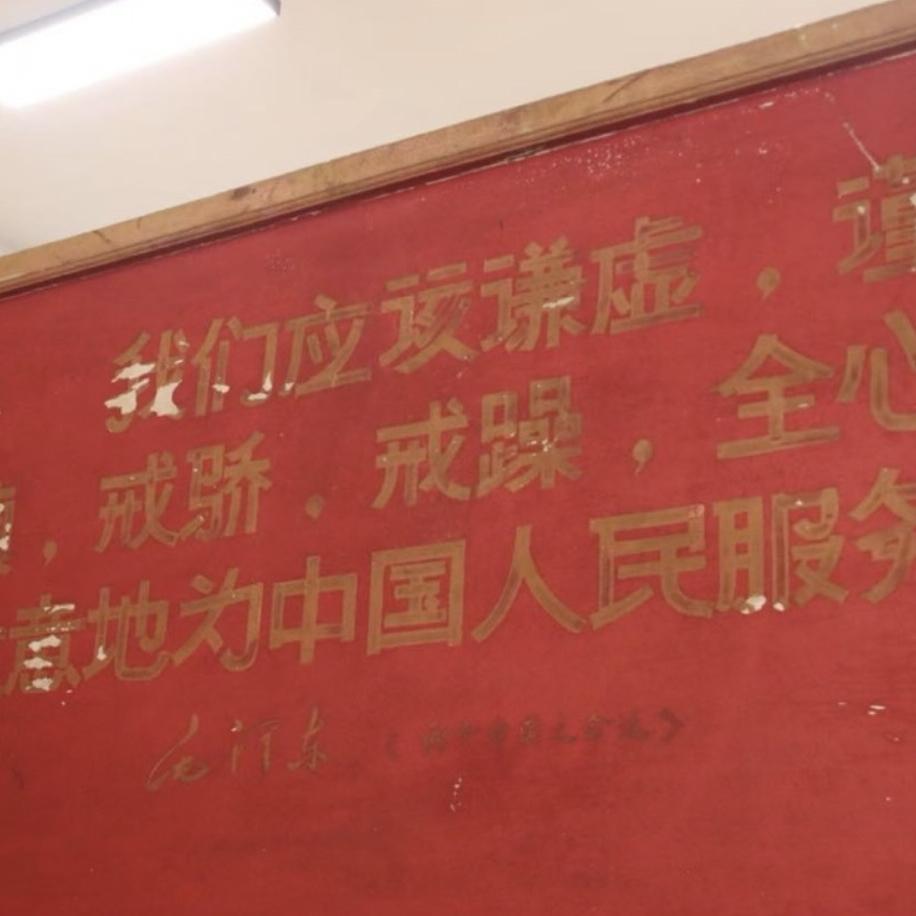 我们应该谦虚，谨
慎，戒骄，戒躁，全心
意地为中国人民服务
毛泽东